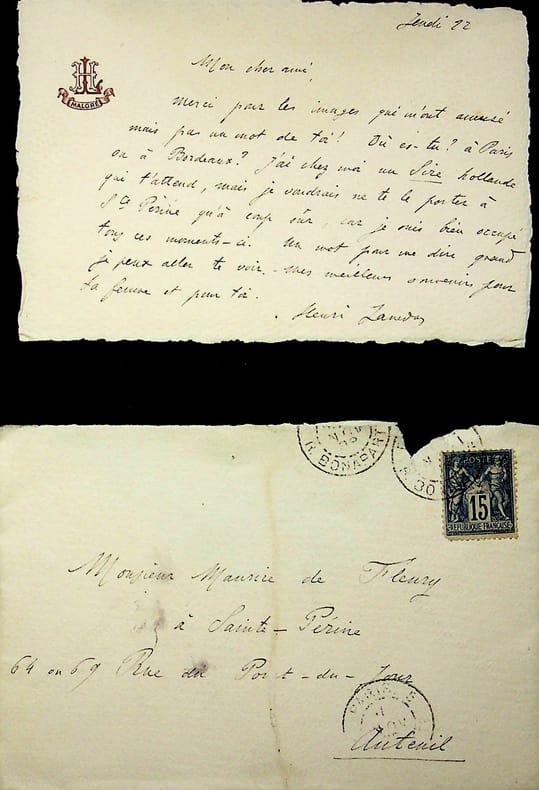 Jeudi 22
HL
MALGRÉ
Mon cher ami,
Merci pour les images qui m'ont amusé
mais pas un mot de toi! Où es-tu? à Paris
ou à Bordeaux? J'ai chez moi un Sire hollande
qui t'attend, mais je voudrais ne te le porter à
Ste Périne qu'à coup sûr, car je suis bien occupé
tous ces moments-ci. Un mot pour me dire quand
je peux aller te voir. - mes meilleurs souvenirs pour
ta femme et pour toi.
Henri
NOV
R. BONAPART
POSTE
15
REPUBLIQUE FRANÇAISE
Monsieur Maurice de Fleury
à Sainte-Périne
64 ou 69 Rue du Point-du-Jour
PARIS
NOV
Auteuil